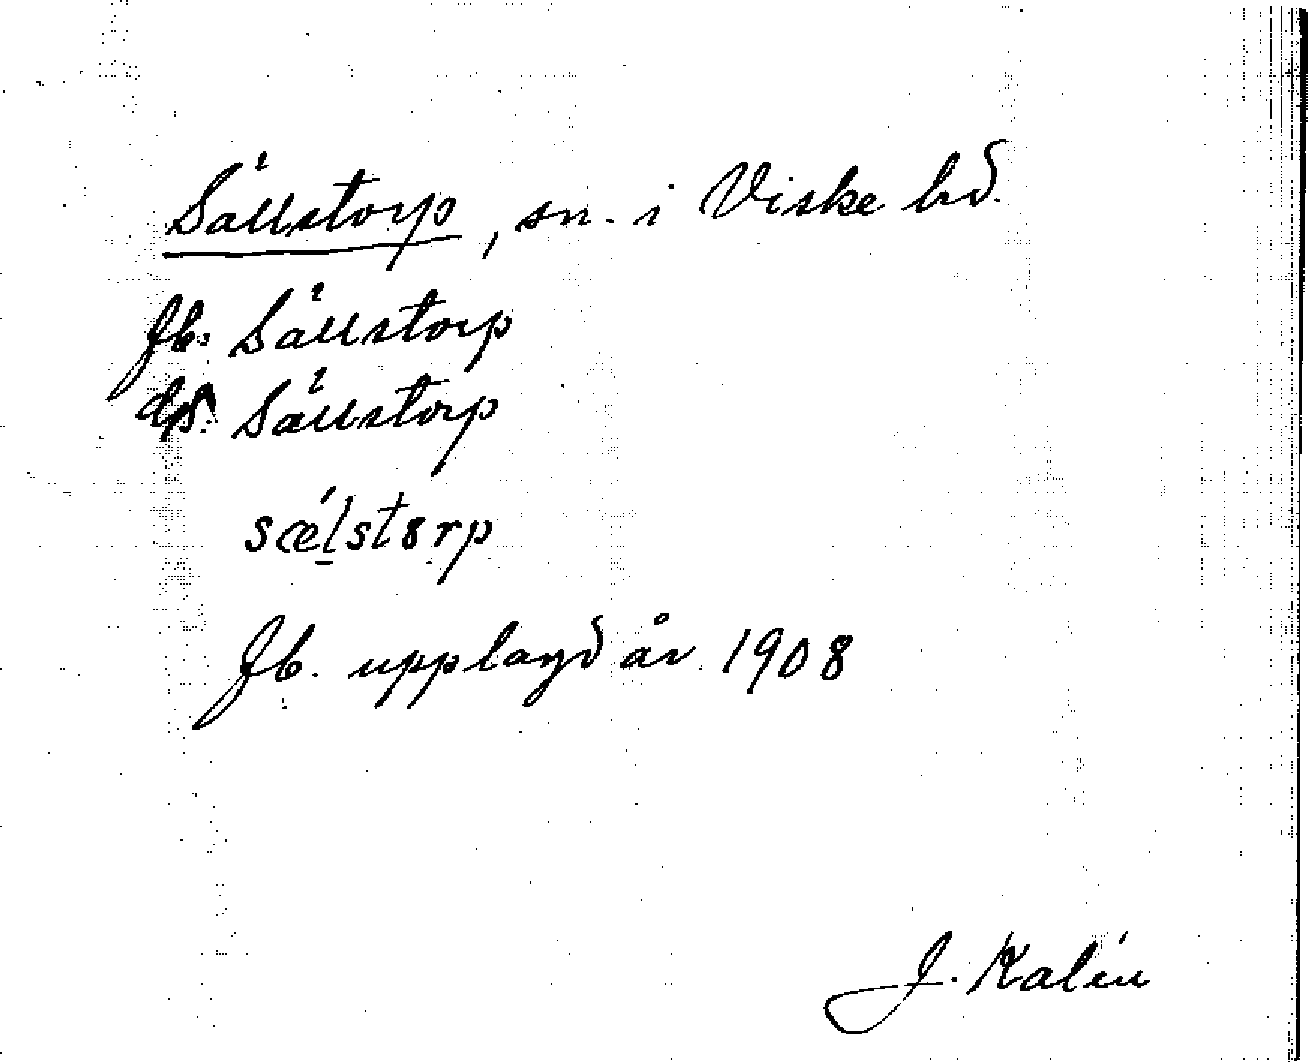 Sällstorp, sn. i Viske hd.
Jb. Sällstorp
ds. Sällstorp
sœ́lstɵrp
Jb. upplagd år 1908
J. Kalén